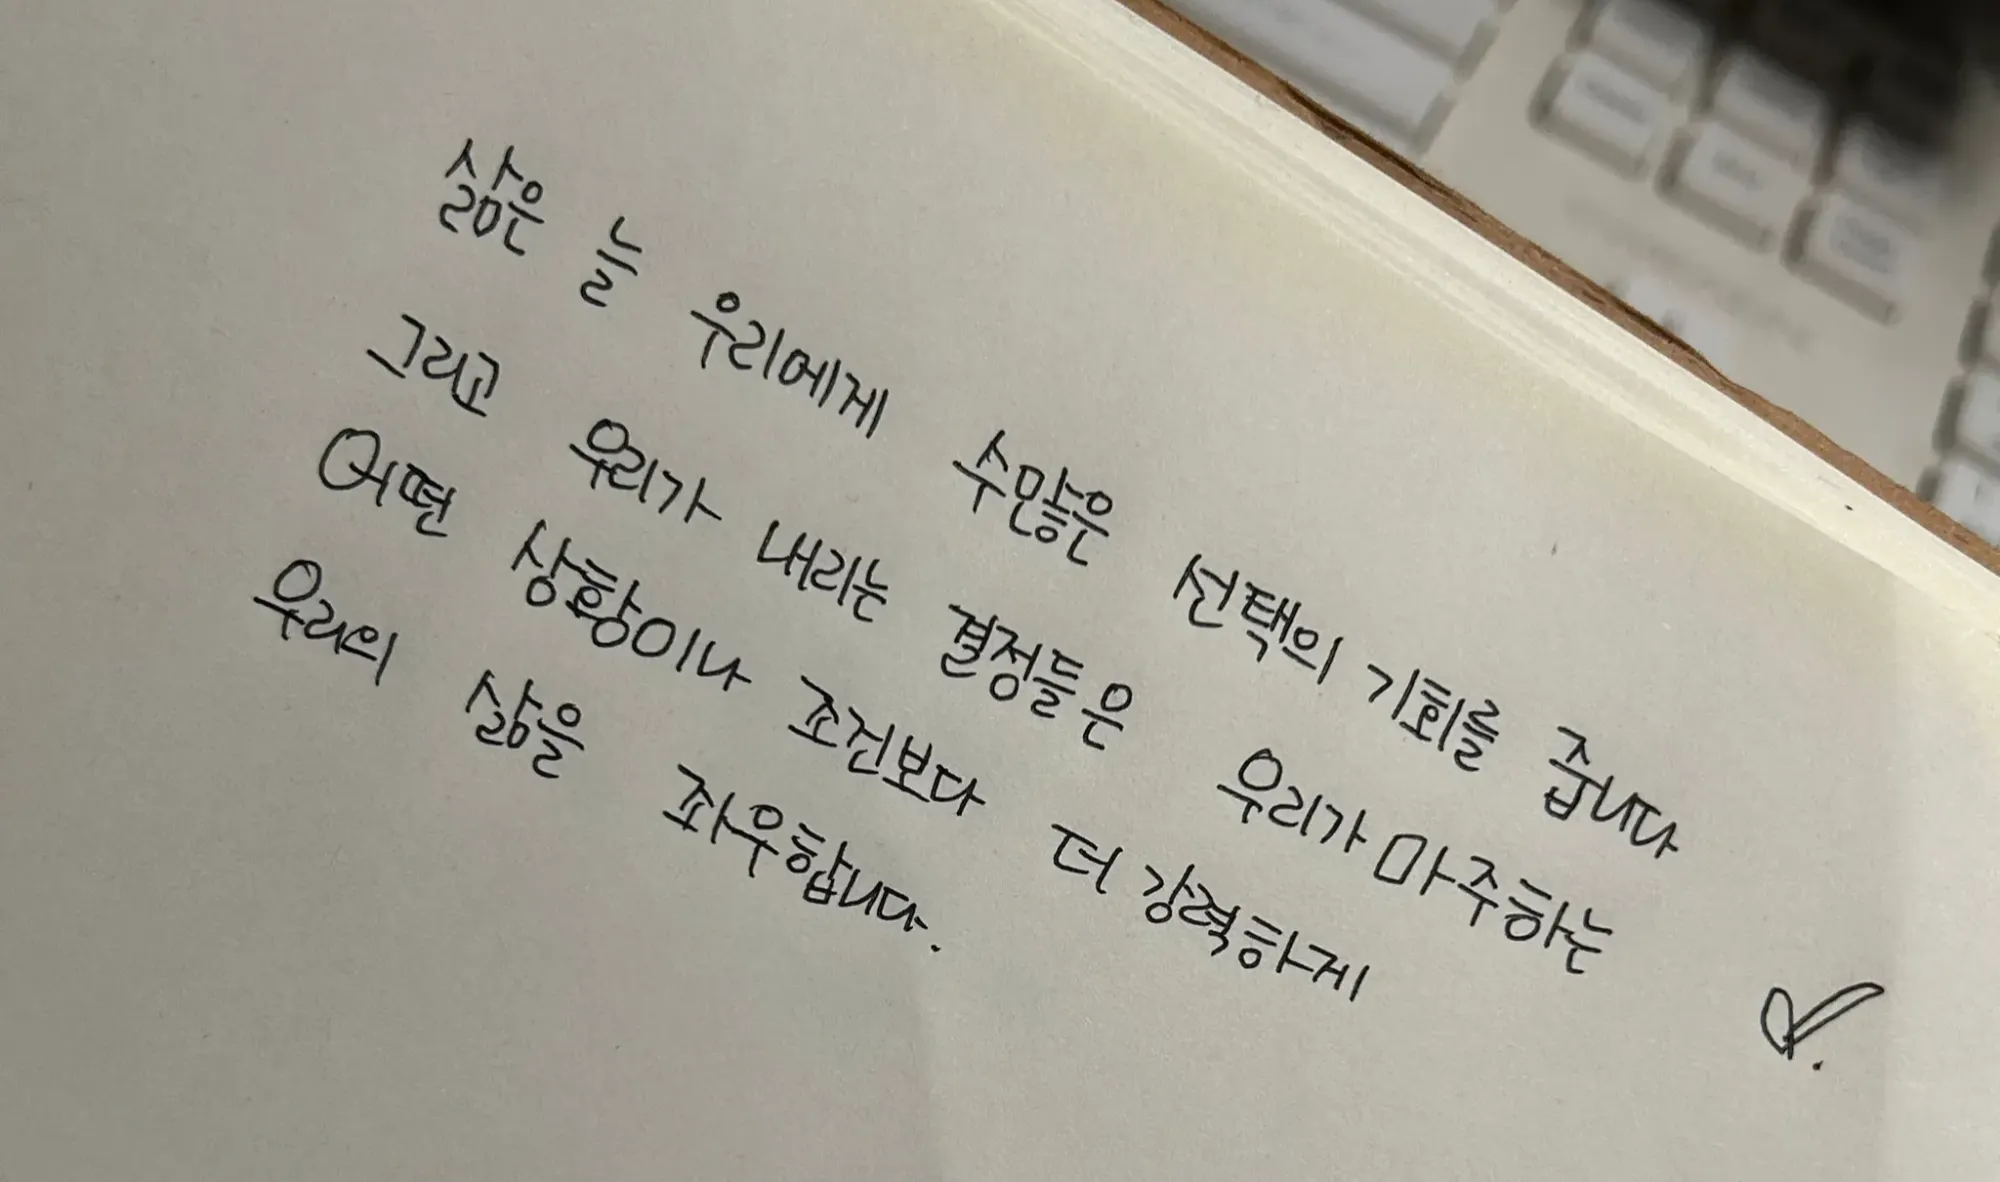 삶은 늘 우리에게 수많은 선택의 기회를 줍니다
그리고 우리가 내리는 결정들은 우리가 마주하는
어떤 상황이나 조건보다 더 강력하게
우리의 삶을 좌우합니다.